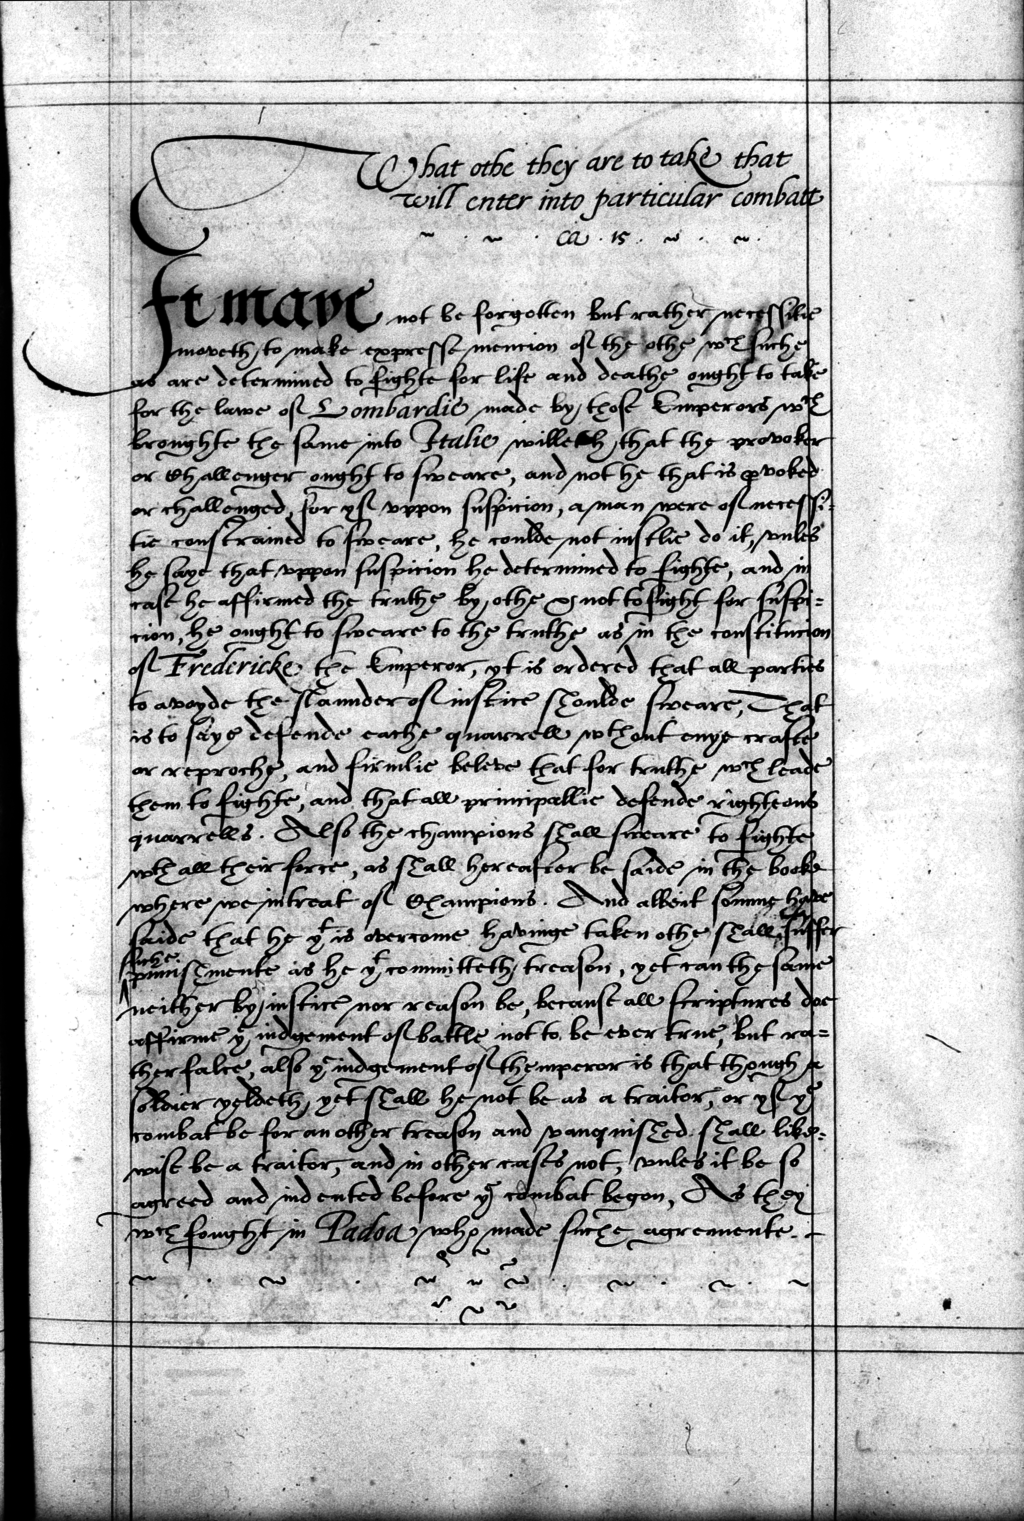 What othe they are to take that
will enter into particular combatt
ca . 15 .
It maye not be forgotten but rather necessitie
moveth to make expresse mencion of the othe wch suche
as are determined to fighte for life and deathe ought to take
for the lawe of Lombardie made by those Emperors wch
broughte the same into Italie willeth that the provoker
or Challenger ought to sweare, and not he that is pvoked
or challenged, for yf uppon suspicion, a man were of necessi-
tie constrained to sweare, he coulde not iustlie do it, unles
he saye that uppon suspicion he determined to fighte, and in
case he affirmed the truthe by othe & not to fight for suspi=
cion, he ought to sweare to the truthe as in the constitucion
of Fredericke the Emperor, yt is ordered that all parties
to avoyde the slaunder of iustice shoulde sweare, That
is to saye defende eache quarrell wthout enye crafte
or reproche, and firmlie beleve that for truthe wch leade
them to fighte, and that all principallie defende righteous
quarrells. Also the champions shall sweare to fighte
wth all their force, as shall hereafter be saide in the booke
where we intreat of Champions. And albeit somme have
saide that he yt is overcome havinge taken othe shall suffer
suche
punishmente as he yt committeth treason, yet can the same
neither by iustice nor reason be, because all scriptures doe
affirme ye iudgement of battle not to be ever true, but ra=
ther falce, also ye iudgement of themperor is that though a
soldier yeldeth, yet shall he not be as a traitor, or yf ye
combat be for an other treason and vanquished shall like=
wise be a traitor, and in other cases not, unles it be so
agreed and indented before ye combat begon, As they
wch fought in Padoa who made suche agremente.